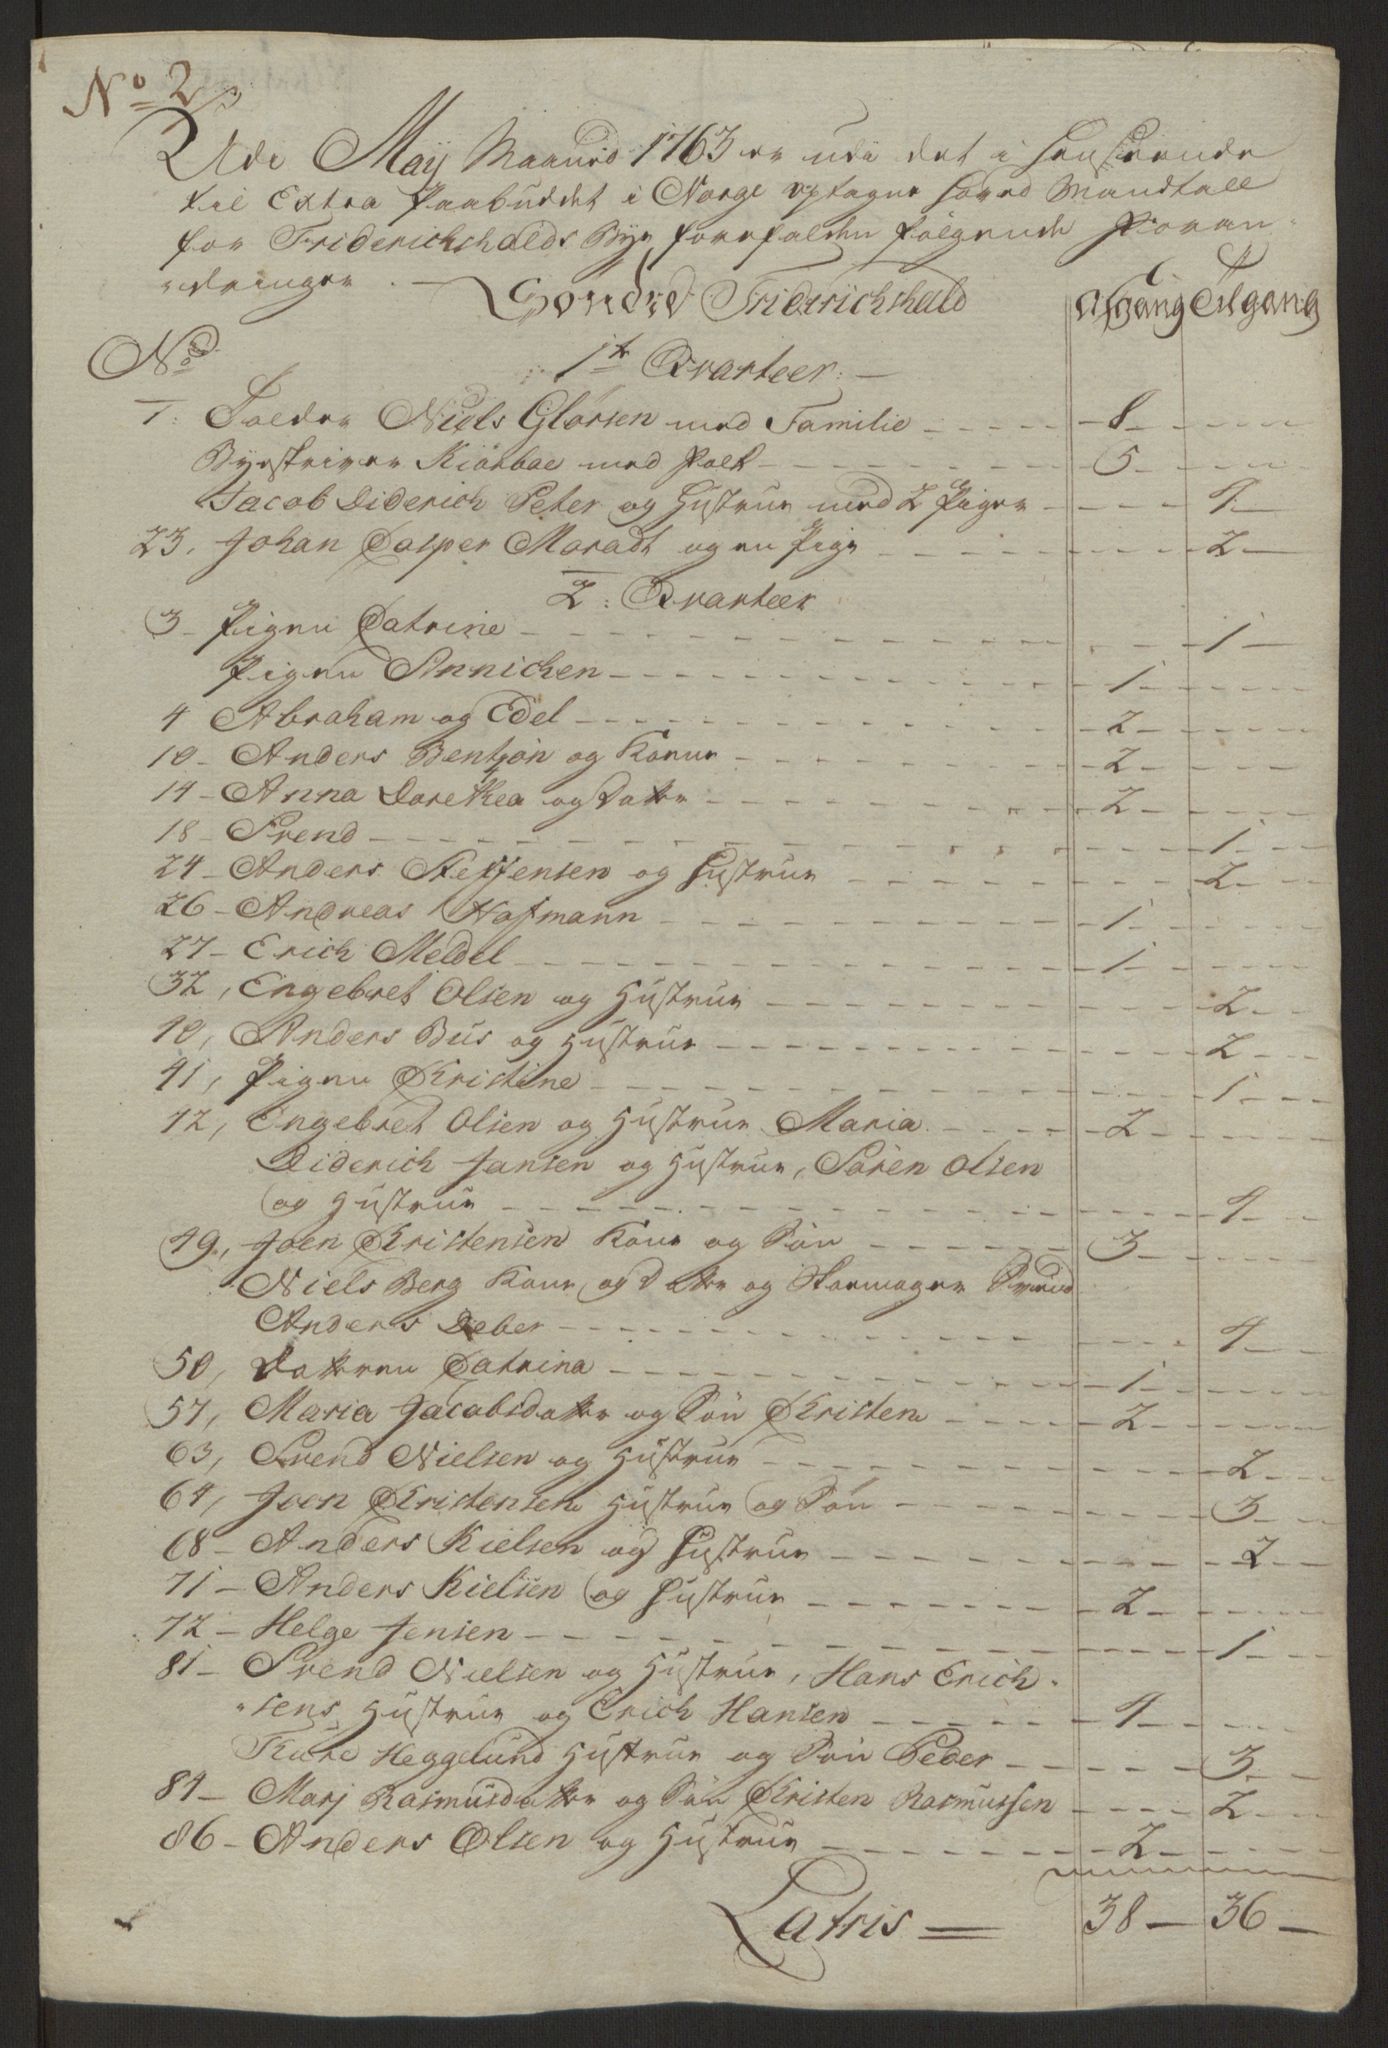 No 2
Udi Maÿ Maaned 1763 er udi det i henseende
til Extra Paabuddet i Norge optagne hoved Mandtall
for Friderichshalds Bÿe forefalden følgende Foran-
dringer. Søndre Friderichshald Afgang Tilgang
No
1te Qvarteer.
1. Tolder Niels Glørsen med Familie 8
Byeskriver Kiørboe med Folk 5
Jacob Diderich Peter og Hustrue med 2 Piger 4
23, Johan Casper Maradt og en Pige 2
2: Qvarteer
3 Pigen Catrine 1
Pigen Annichen 1
4 Abraham og Edel 2
10 Anders Bentzon og Kone 2
14 Anna Dorethea og Datter 2
18 Svend 1
24 Anders Steffensen og Hustrue 2
26 Andreas Hofmann 1
27 Erich Meldel 1
32, Engebret Olsen og Hustrue 2
40, Anders Bus og Hustrue 2
41, Pigen Kristine 1
42, Engebret Olsen og Hustrue Maria 2
Diderich Jansen og Hustrue, Søren Olsen
og Hustrue 4
49, Joen Kristensen Kone og Søn 3
Niels Berg Kone og Datter og Skomager Svend
Anders Deber 4
50, Datteren Catrina 1
57, Maria Jacobsdatter og Søn Kristen 2
63, Svend Nielsen og Hustrue 2
64, Joen Kristensen Hustrue og Søn 3
68 Anders Kielsen og Hustrue 2
71 Anders Kielsen og Hustrue 2
72 Helge Jensen 1
81 Svend Nielsen og Hustrue, Hans Erich-
sens Hustrue og Erich Hansen 4
Ture Heggelund Hustrue og Søn Peder 3
84 Marj Rasmusdatter og Søn Kristen Rasmussen 2
86 Anders Olsen og Hustrue 2
Latris 38 36